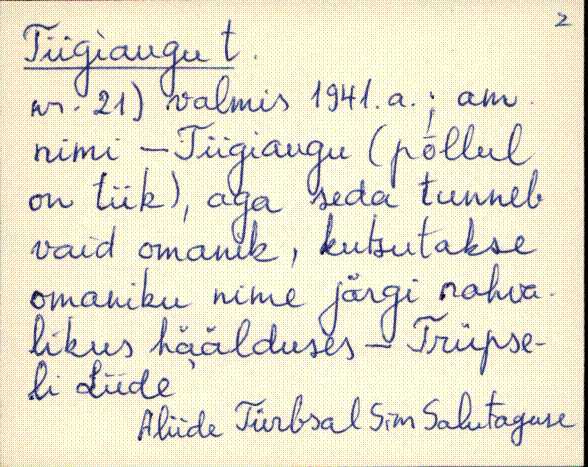 2
Tiigiaugu t.
nr. 21) valmis 1941. a.; am.
nimi – Tiigiaugu (põllul
on tiik), aga seda tunneb
vaid omanik, kutsutakse
omaniku nime järgi rahva-
likus häälduses – Trüpse-
li Liide
Aliide Türbsal Sim Salutaguse